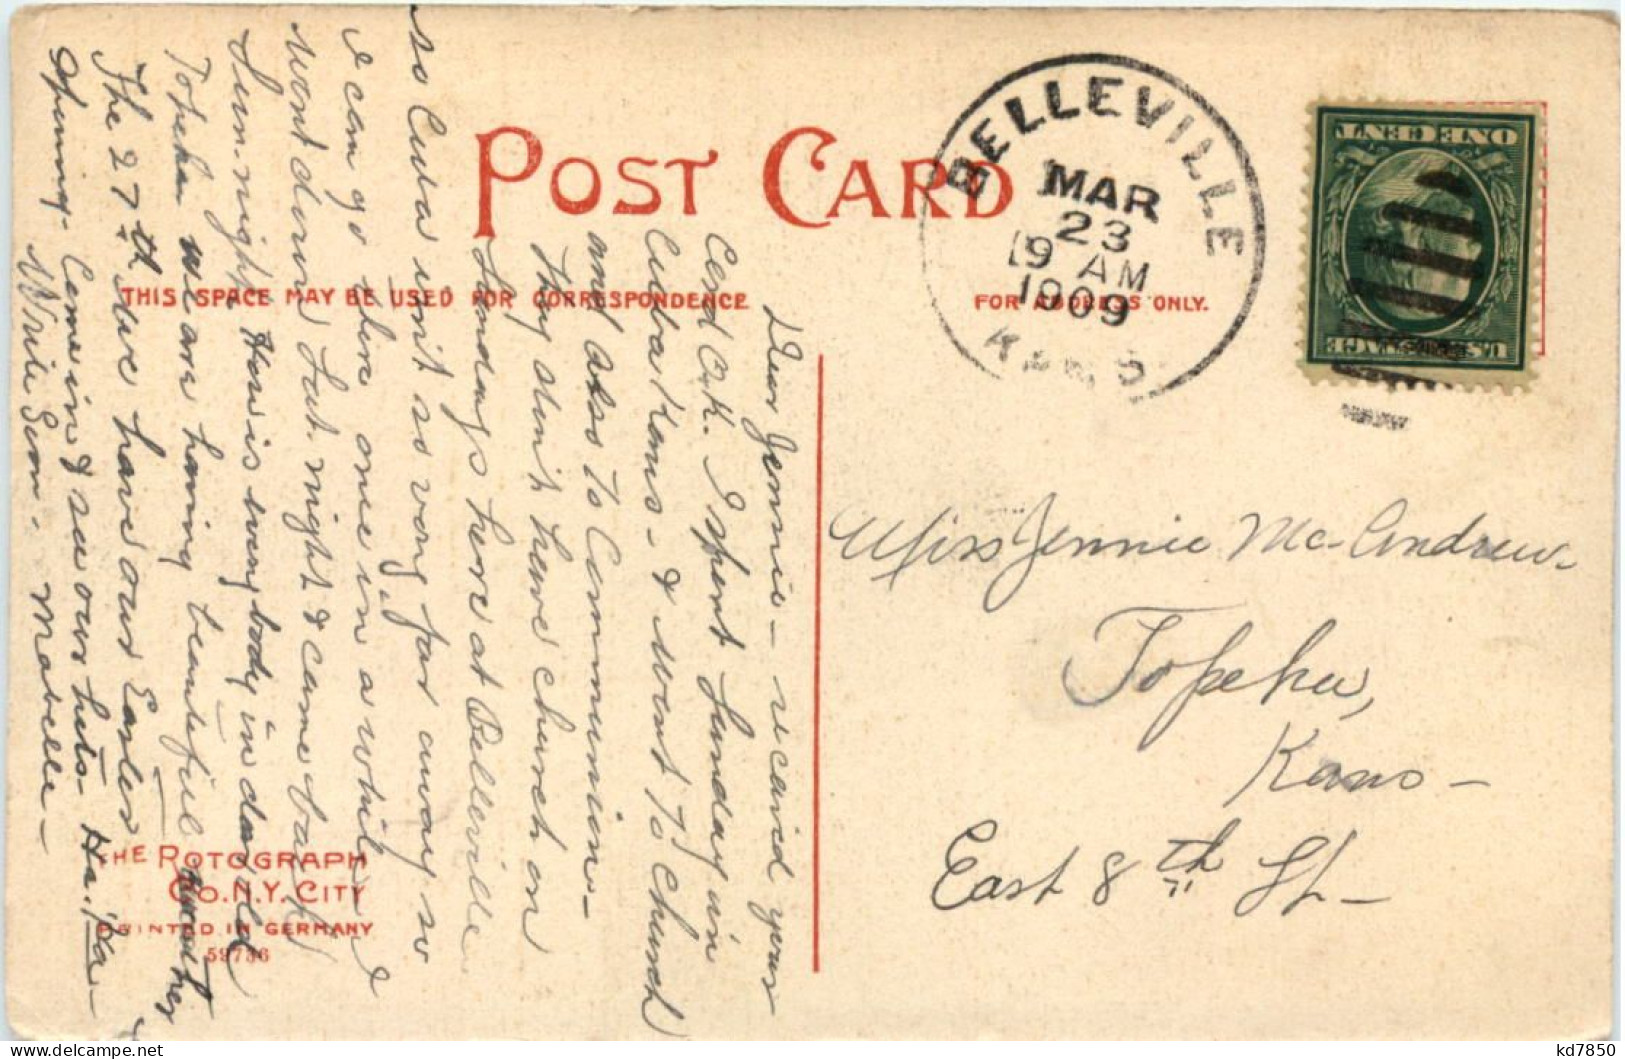 POST CARD
THIS SPACE MAY BE USED FOR CORRESPONDENCE
FOR ADDRESS ONLY.
BELLEVILLE
MAR
23
9 AM
1909
KANS
ONE CENT
U.S. POSTAGE
Dear Jennie - recavid your
Card O.K. I spent Sunday in
Cuba Kans - & went to church
and also to Communion -
They don't have church on
Sundays here at Belleville
so Cuba isn't so very far away so
I can go there once in a while. I
went down Sat. night & came back
Sun. night. How is everybody in dear old
Topeka we are having beautiful weather
The 27th we have our Easter
opening - Come in & see our hats - Ha. Ha -
Write Soon - Mabelle -
Miss Jennie Mc-Andrew -
Topeka,
Kans -
East 8th St -
THE ROTOGRAPH
CO. N.Y. CITY
PRINTED IN GERMANY
59736
kd7850